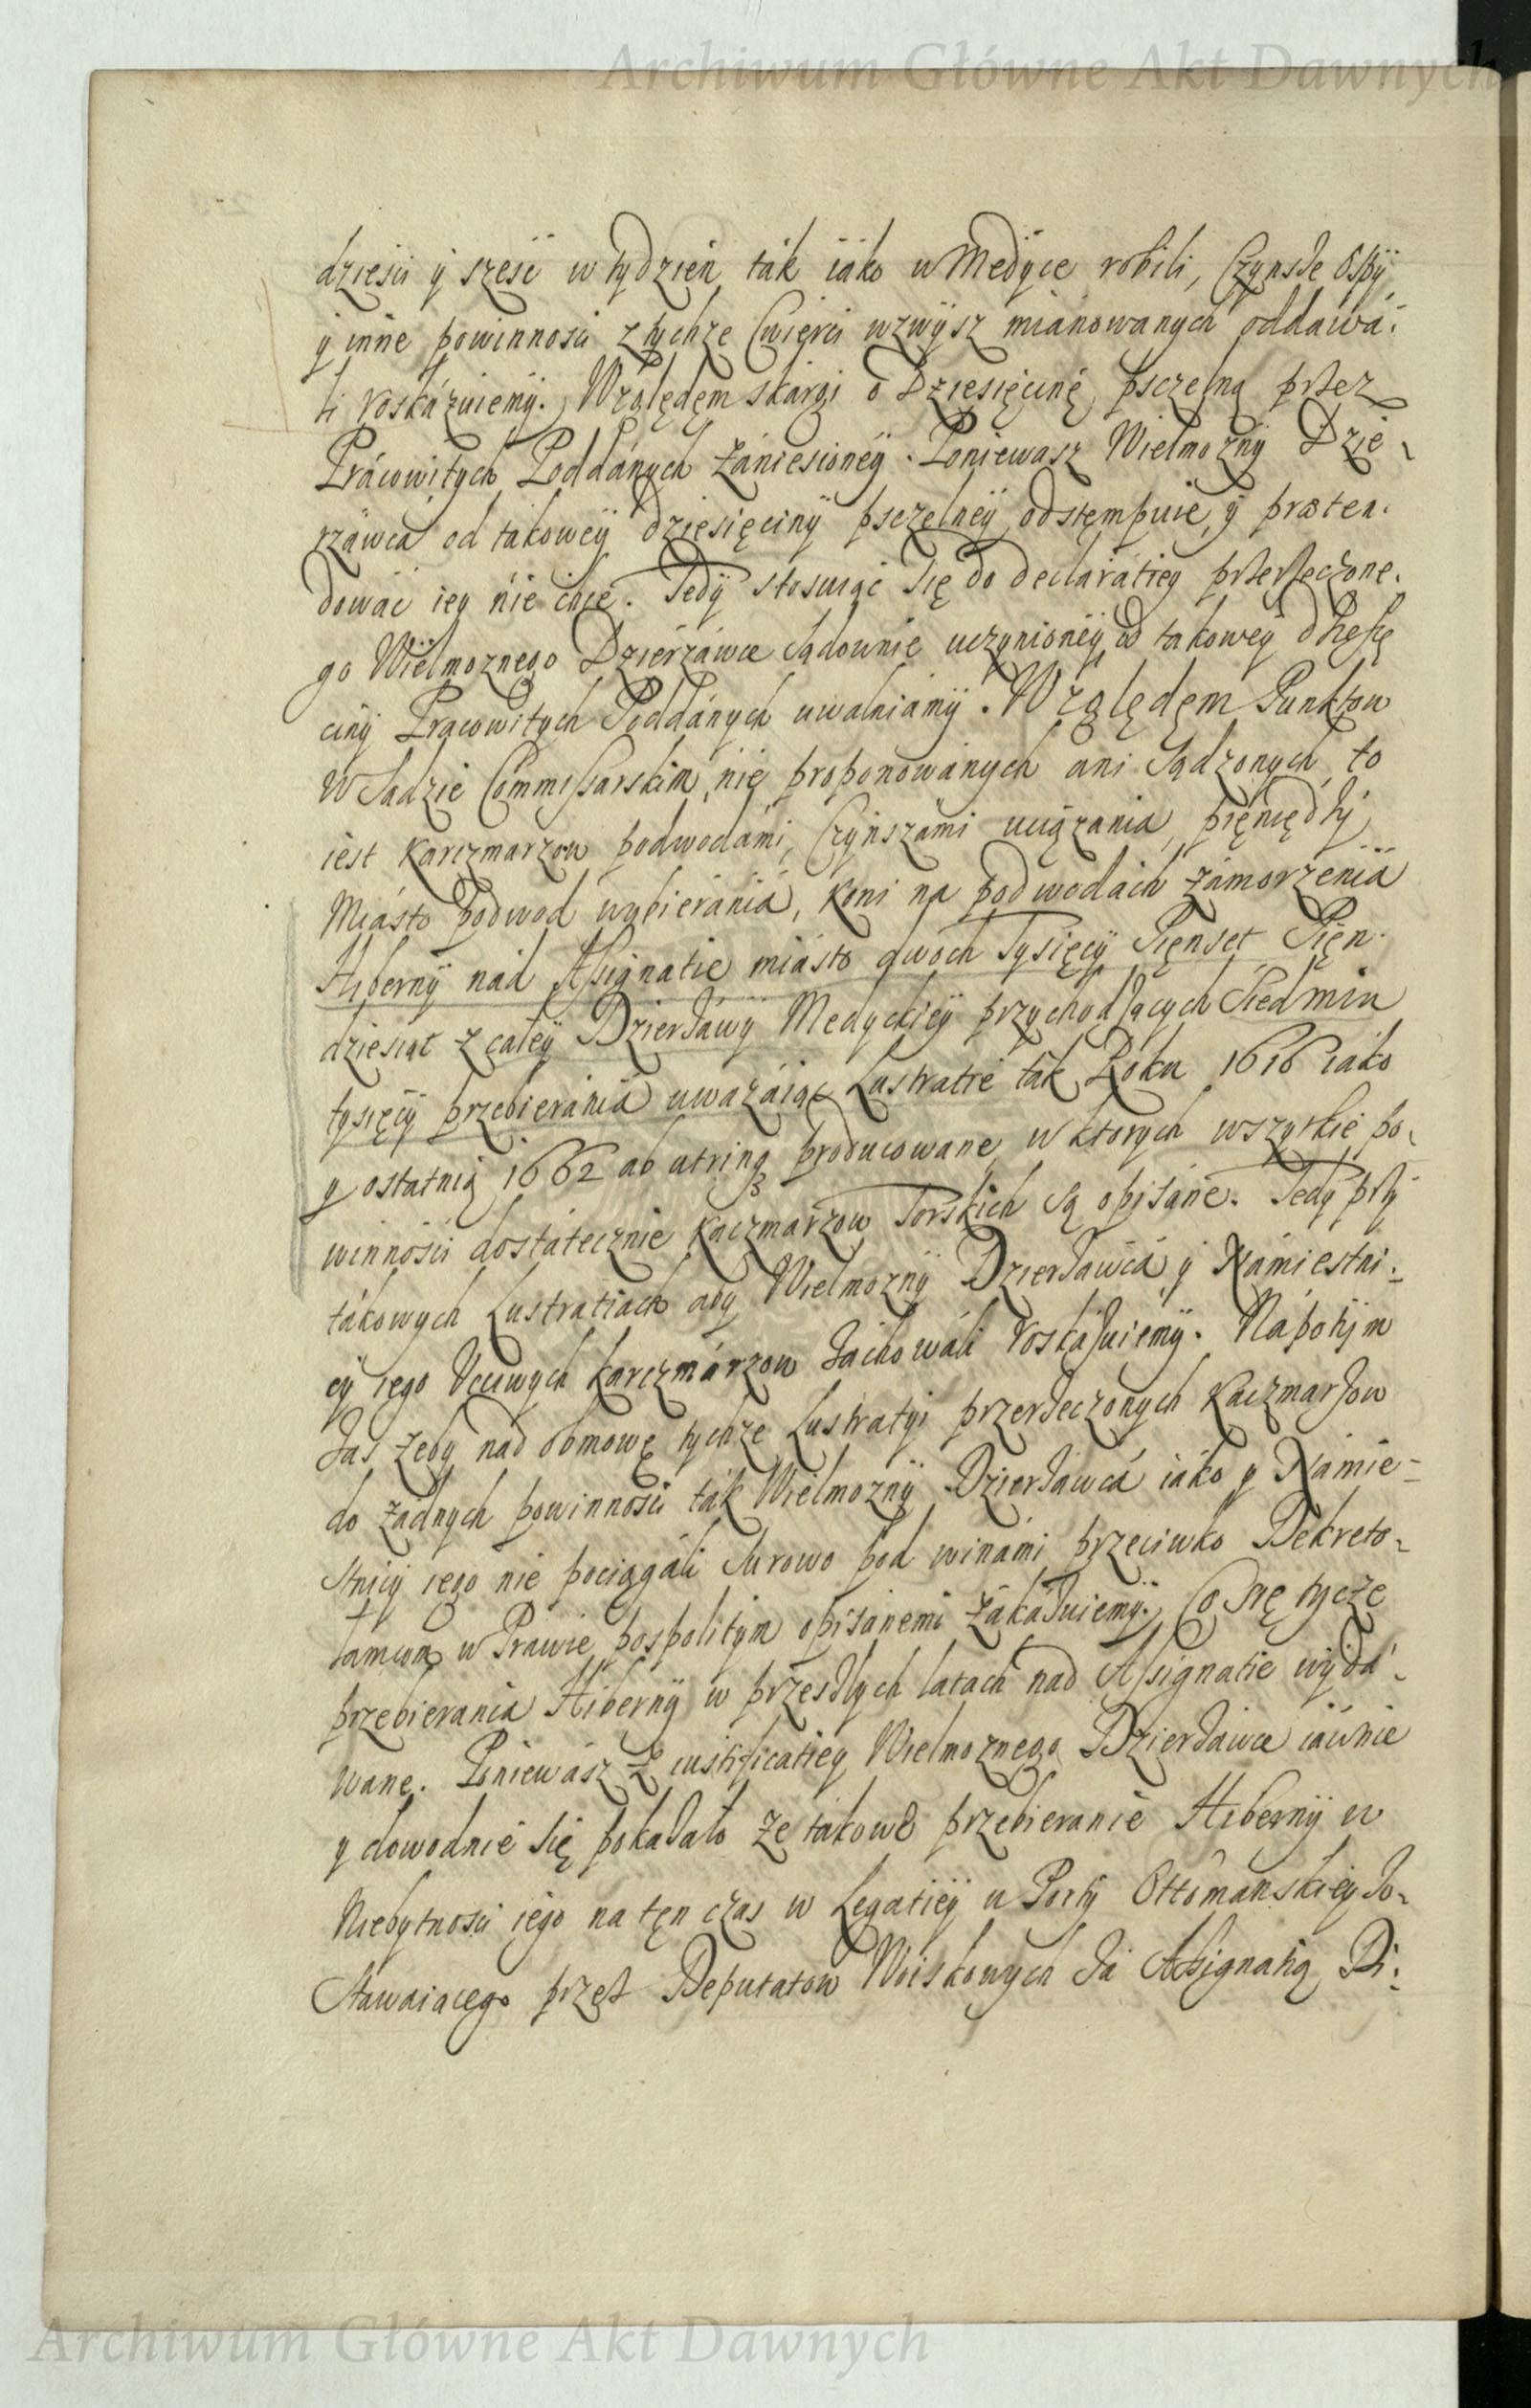 Archiwum Główne Akt Dawnych
dziesci y sześć w tydzien tak iako w Medyce robili, Czynsze Ospÿ
y inne powinnosci z tychze Cwierci wzwysz mianowanych oddawa-
li roskazuiemy. Względem skargi o Dziesięcinę pszczelną przez
Pracowitych Poddanych zaniesioneÿ. Poniewasz Wielmozny Dzie-
rzawca od takoweÿ dziesięcinÿ pszczelneÿ odstępuie, y præten-
dować iey nie chce. Tedÿ stosuiąc się do declaratiey przerzeczone-
go Wielmoznego Dzierzawce sądownie uczynioneÿ od takoweÿ dziesię
cinÿ Pracowitych Poddanych uwalniamÿ. Względem Punktow
w Sądzie Commissarskim nie proponowanych ani sądzonych to
iest Karczmarzow podwodami, Czynszami uciązania, pieniędzÿ
miasto podwod wybierania, koni na podwodach zamorzenia
Hibernÿ nad Assignatie miasto dwoch Tysięcÿ Pięnset Pięn-
dziesiąt z całeÿ Dzierzawÿ Medyckieÿ przychodzących Siedmiu
tysięcÿ przebierania uwazaiąc Lustratie tak Roku 1616 iako
y ostatnią 1662 ab utrinq producowane w ktorych wszytkie po-
winnosci dostatecznie Kaczmarzow Torskich są opisane. Tedÿ przÿ
takowych Lustratiach aby Wielmoznÿ Dzierzawca y Namiestni-
cÿ iego Uczciwych karczmarzow zachowali roskazuiemÿ. Napotÿm
zas zeby nad obmowę tychze Lustratyi przerzeczonych Kaczmarzow
do zadnych powinnosci tak Wielmoznÿ Dzierzawca iako y Namie-
stnicÿ iego nie pociągali surowo pod winami przeciwko Dekreto-
łamcom w Prawie pospolitym opisanemi zakazuiemÿ. Co się tycze
przebierania Hibernÿ w przeszłych latach nad Assignatie wyda-
wane. Poniewasz z iustificatiey Wielmoznego Dzierzawce iawnie
y dowodnie się pokazało ze takowe przebieranie Hibernÿ w
Niebytnosci iego na tęn czas w Legatieÿ u Portÿ Ottomanskiey zo-
stawaiącego przez Deputatow Woiskowych za Assignatią Di-
Archiwum Główne Akt Dawnych